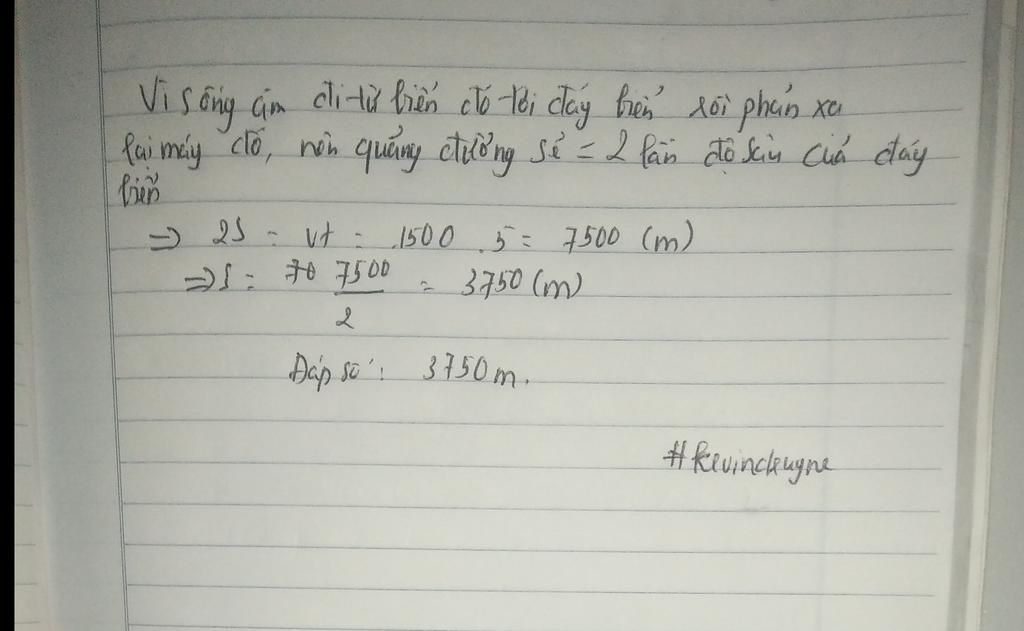 Vì sóng âm đi từ biển đó tới đáy biển rồi phản xạ
lại máy đó, nên quãng đường sẽ = 2 lần độ sâu của đáy
biển
=> 2S = vt = 1500 . 5 = 7500 (m)
=> S = 7500 / 2 = 3750 (m)
Đáp số: 3750 m.